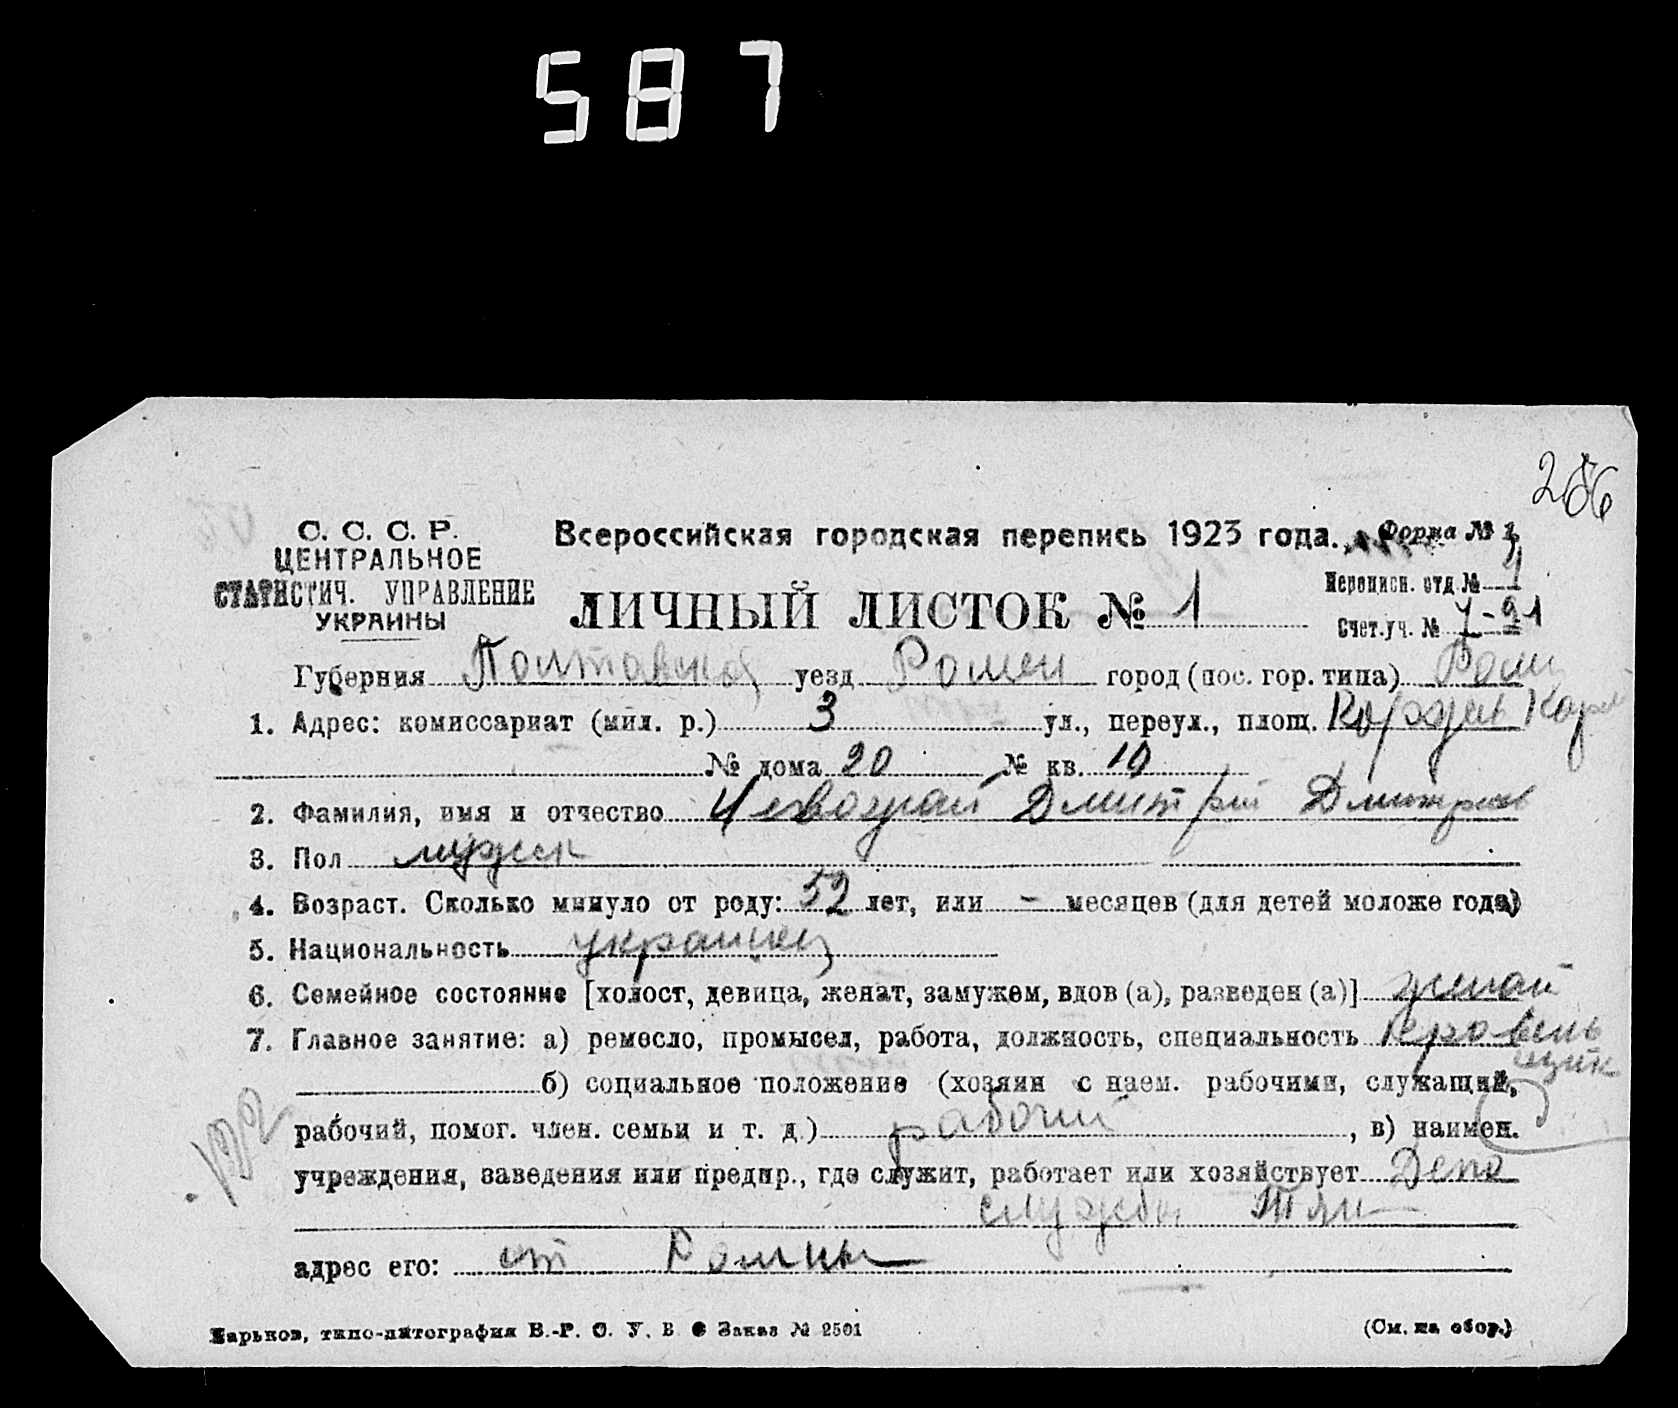 587
286
С. С. С. Р.
ЦЕНТРАЛЬНОЕ
СТАТИСТИЧ. УПРАВЛЕНИЕ
УКРАИНЫ
Всероссийская городская перепись 1923 года.
Форма № 1
ЛИЧНЫЙ ЛИСТОК № 1
Переписн. отд. № 1
Счет.уч. №
Губерния Полтавской уезд Ромен город (пос. гор. типа)
1. Адрес: комиссариат (мил. р.) 3 ул., переул., площ.
№ дома 20 № кв. 10
2. Фамилия, имя и отчество Дмитрий Дмитриев
3. Пол мужск
4. Возраст. Сколько минуло от роду: 52 лет, или - месяцев (для детей моложе года)
5. Национальность украинец
6. Семейное состояние [холост, девица, женат, замужем, вдов (а), разведен (а)]
7. Главное занятие: а) ремесло, промысел, работа, должность, специальность кровель
щик
б) социальное положение (хозяин с наем. рабочими, служащий,
рабочий, помог. член. семьи и т. д.) рабочий , в) наимен.
учреждения, заведения или предпр., где служит, работает или хозяйствует Депо
службы Тяги
адрес его: ст Ромны
Харьков, типо-литография В.-Р. С. У. В Заказ № 2501
(См. на обор.)